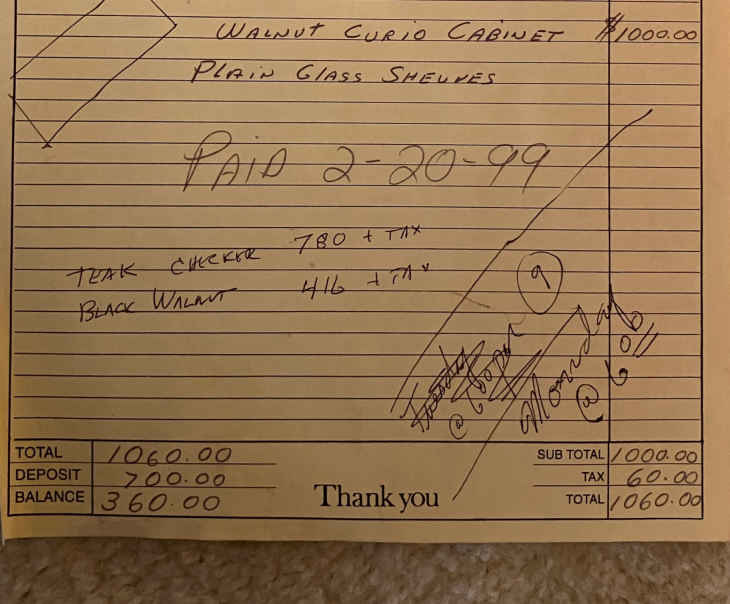 WALNUT CURIO CABINET $1000.00
PLAIN GLASS SHELVES
PAID 2-20-99
TEAK CHECKER 780 + TAX
BLACK WALNUT 416 + TAX
9
Tuesday
@ 6:00pm
Monday
@ 6:00
TOTAL 1060.00
DEPOSIT 700.00
BALANCE 360.00
Thank you
SUB TOTAL 1000.00
TAX 60.00
TOTAL 1060.00